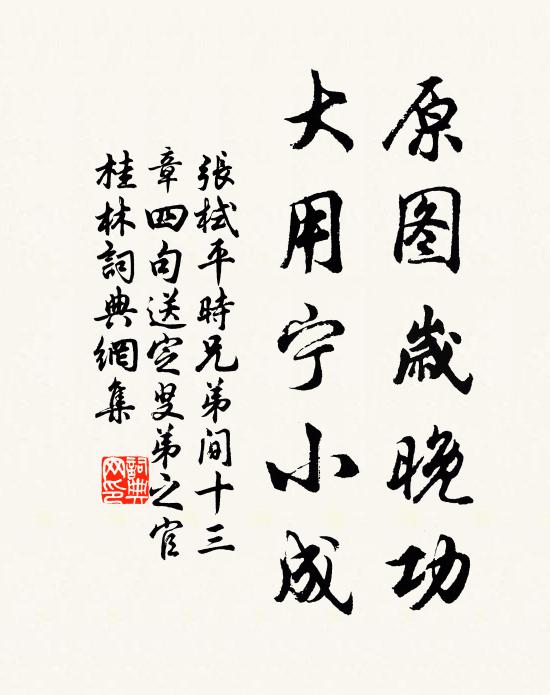 原图歲晚功
大用宁小成
張栻平時兄弟间十三
章四句送定叟弟之官
桂林詞典網集
詞典
网印